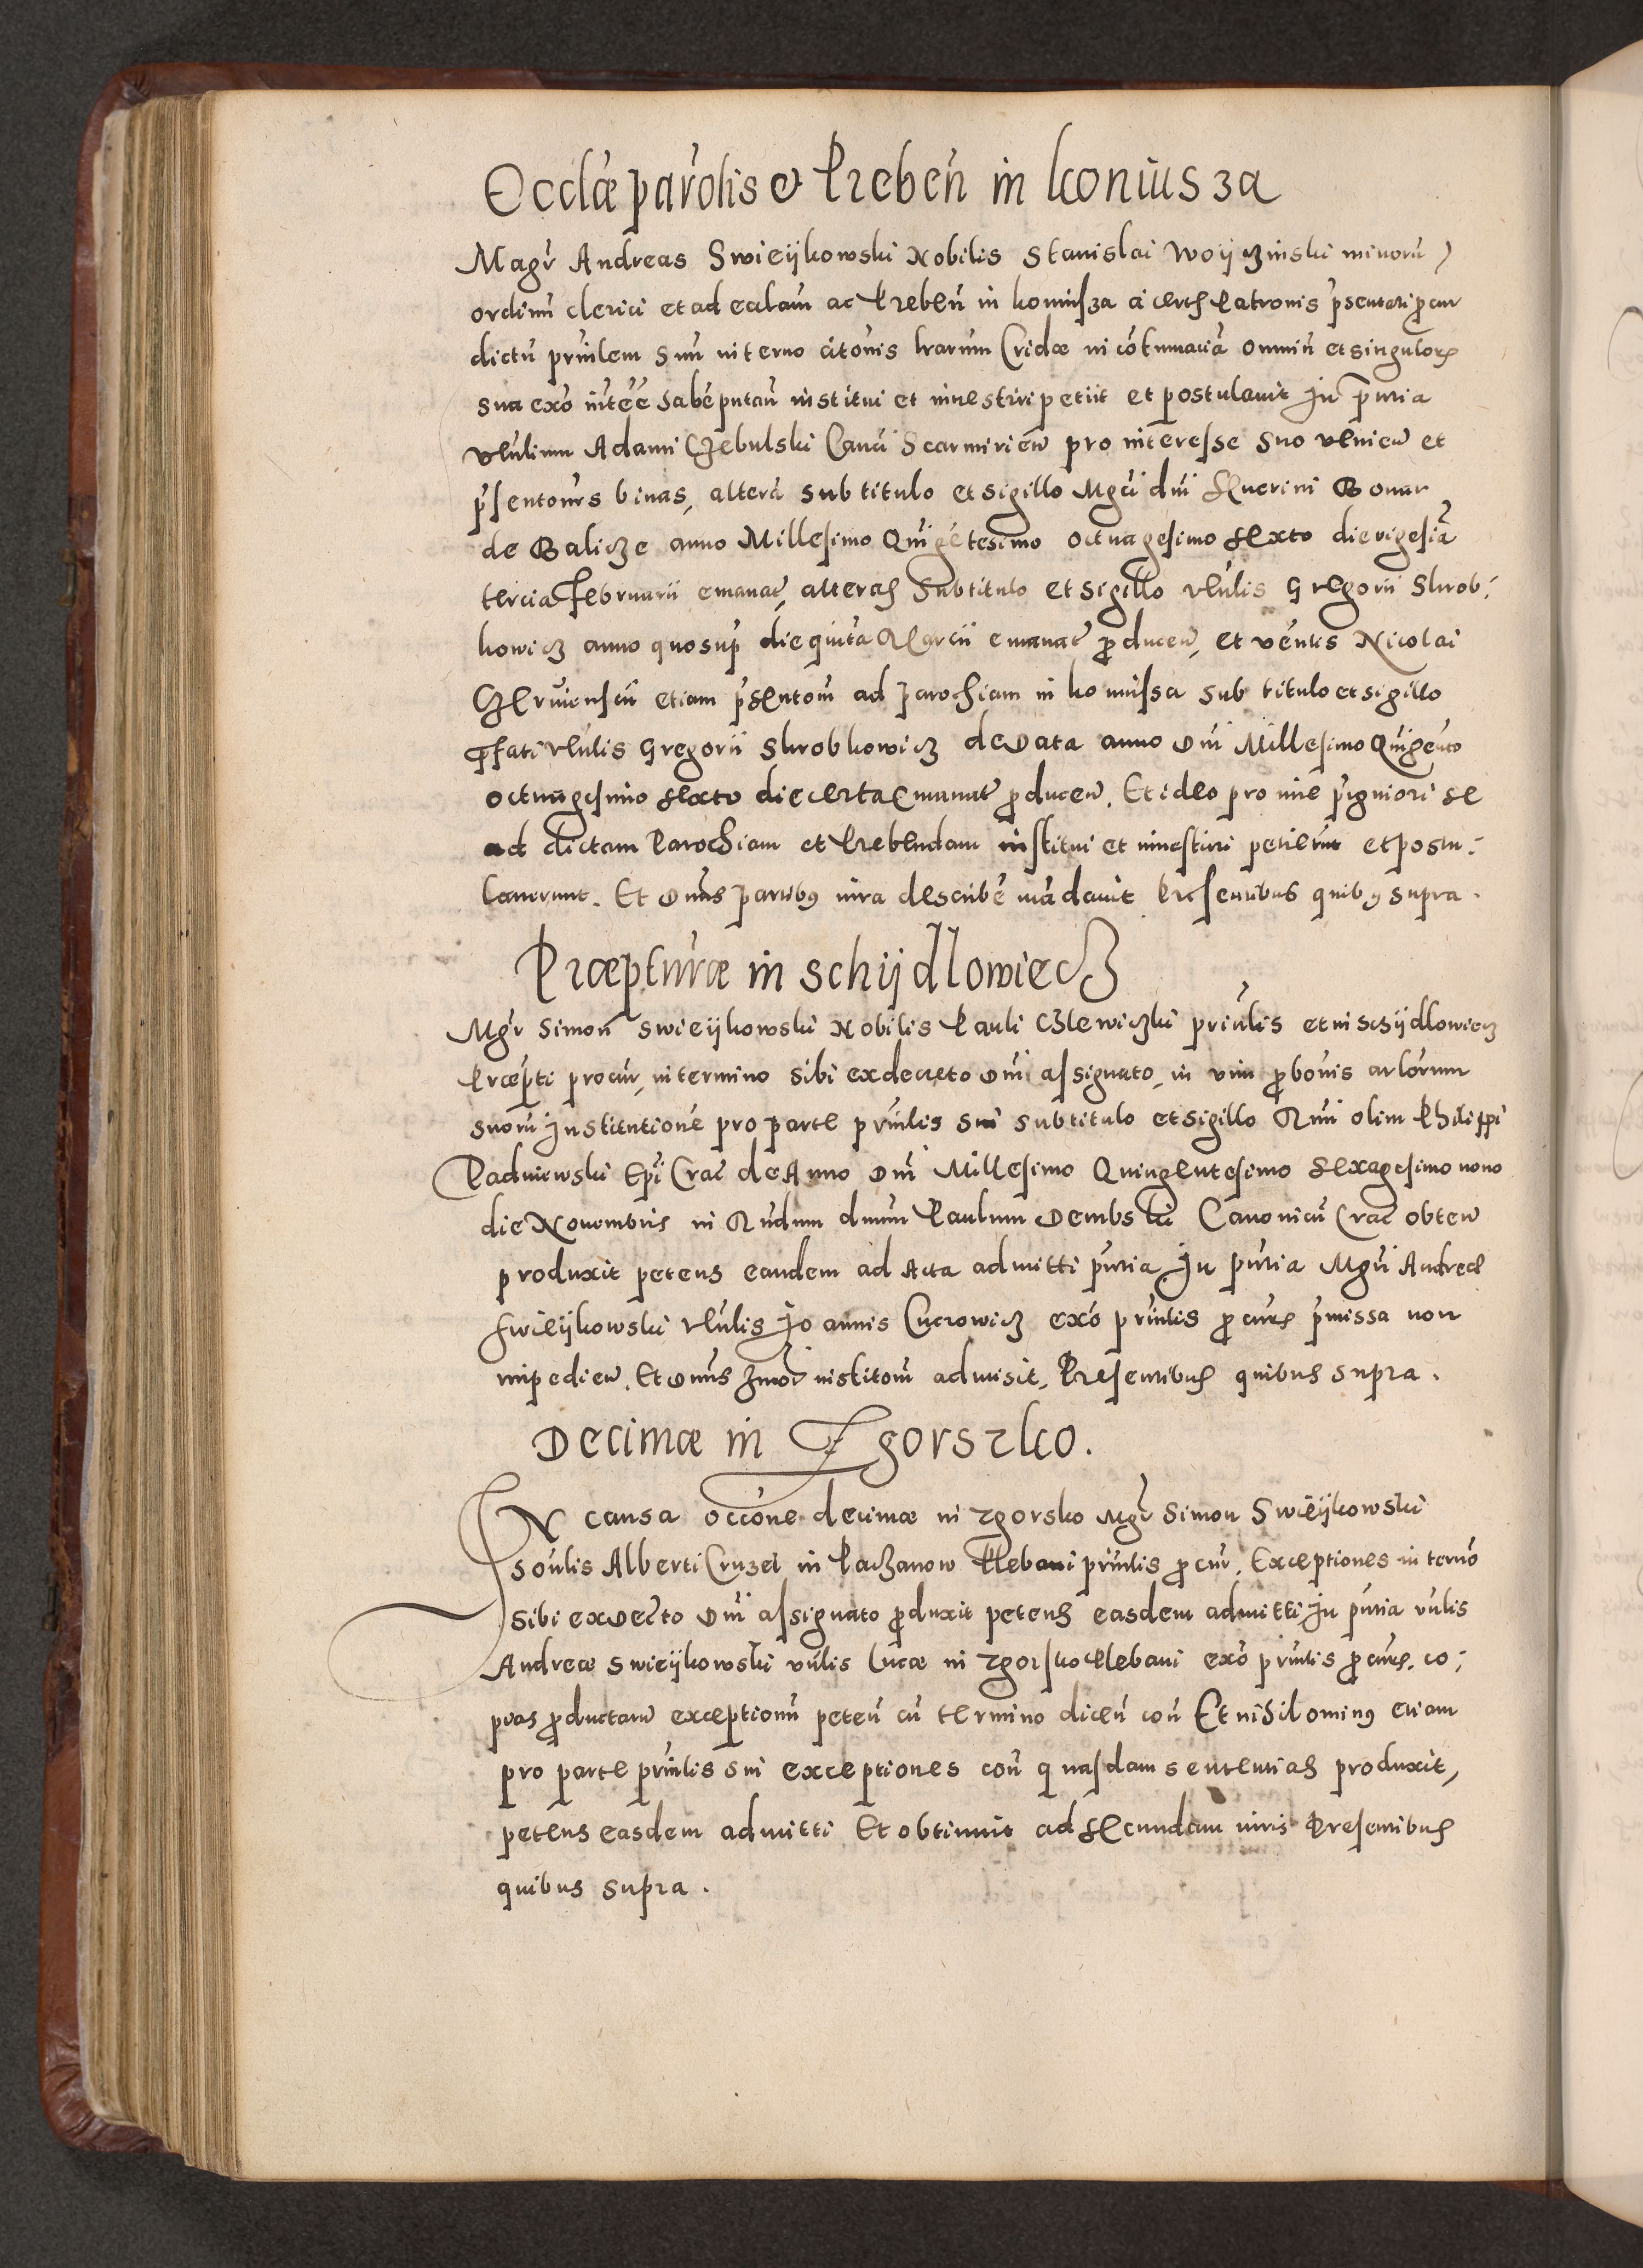 Ecclæ parolis et Præbeń in koniusza
Magr Andreas Swieijkowski Nobilis Stanislai Woijczinski minorũ
ordinũ clerici et ad ecclam ac Prebeń in koniusza a certis Patronis p̃sentati procur
dictũ prinlem suũ in terno citonis lrarum Cridæ in cõtumaciã omniũ et singulorũ
sua exo intẽe habẽ putañ institui et inuestiri petiit et postulauit In p̃ntia
Vlulium Adami Czebulski Canci Scarmirieñ pro interesse suo veniẽn et
p̃sentonis binas, alterã sub titulo et sigillo Mgci dni Seuerini Bonar
de Balicze anno Millesimo Quigẽtesimo octuagesimo sexto die vigesiã
tercia februarii emanat̃, alteras sub titulo et sigillo Vlulis Gregorii Skrob:
kowicz anno quo sup̃ die quita Martii emanat̃ producẽn, et ventis Nicolai
etiam p̃sentom̃ ad parochiam in koniussa sub titulo et sigillo
p̃fati Vlulis Gregorii Skrobkowicz de Data anno Dni Millesimo Quigẽnto
octuagesimo sexto die certa emanat̃ producẽn. Et ideo pro iure p̃igniori se
ad dictam Parochiam et Prebendam institui et inuestiri petierũt et postu:
lauerunt. Et Dnus partibus iura describẽ mãdauit Presentibus quibus supra.
Præpturæ in schijdlowiecz
Mgr Simoñ Swieijkowski Nobilis Pauli Czlewiczki prinlis et in Schijdlowiecz
Præpti procur, in termino sibi ex decreto Dni assignato, in vim probonis arlorum
suorũ Institutionẽ pro parte prinlis sui sub titulo et sigillo Rmi olim Philippi
Padniewski Epi Crac̃ de Anno Dni Millesimo Quingentesimo sexagesimo nono
die Nouembris in Rndum dnum Paulum Dembski Canonicũ Crac̃ obteñ
produxit petens eandem ad Acta admitti p̃ntia, In p̃ntia Mgri Andreæ
Swieijkowski Vlulis Joannis Cucrowicz exo prinlis procuris p̃missa non
impedieñ. Et Dnus hmoi institom̃ admisit, Presentibus quibus supra.
Decimæ in Zgorsko.
In causa occone decimæ in Zgorsko Mgr Simon Swieijkowski
soulis Alberti Cruzel in Paczanow Plebani prinlis procur, Exceptiones in termo
sibi ex Decto Dni assignato produxit petens easdem admitti In p̃ntia vulis
Andreæ Swieijkowski vulis Lucæ in Zgorsko Plebani exo prinlis procuris, co:
pias productarũ exceptionũ peteñ cũ termino diceñ coñ Et nihilominus etiam
pro parte prinlis sui exceptiones coñ quasdam sententias produxit,
petens easdem admitti Et obtinuit ad secundam iuris Presentibus
quibus supra.